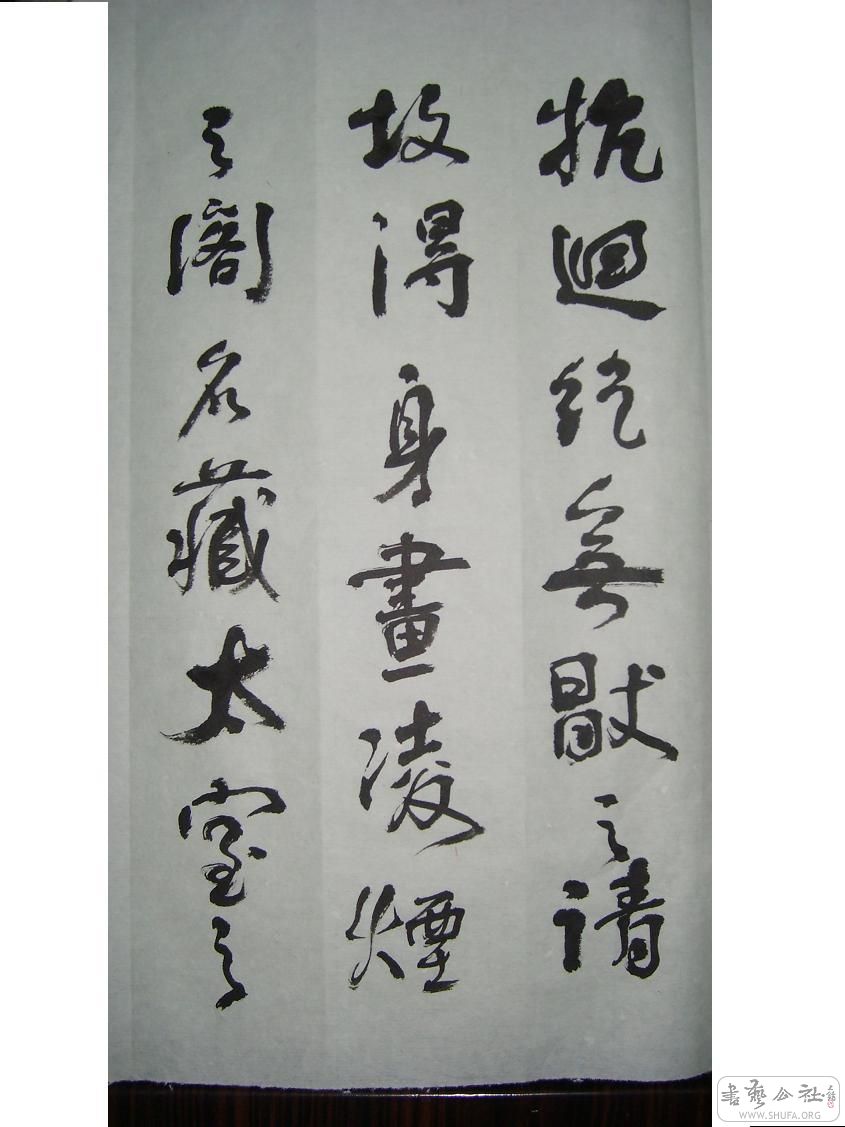 抗迴紇無猒之請
故得身畫淩煙
之阁名藏太室之
書藝公社
WWW.SHUFA.ORG